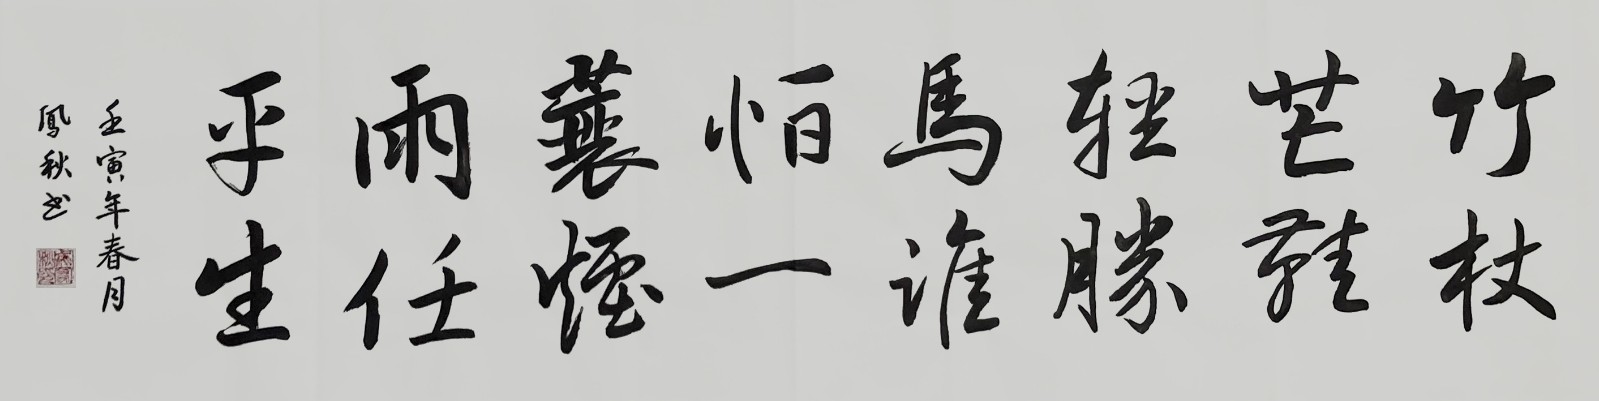 竹杖
芒鞋
轻勝
馬谁
怕一
蓑煙
雨任
平生
壬寅年春月
鳳秋书